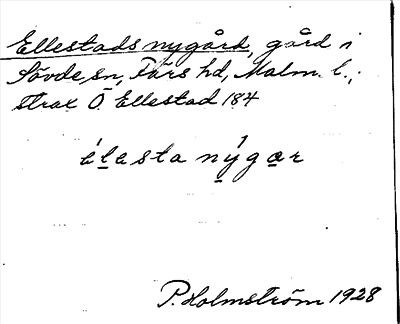 Ellestads nygård, gård i
Sövde sn, Färs hd, Malm. l.,
strax Ö Ellestad 184
élesta nýgar
P. Holmström 1928